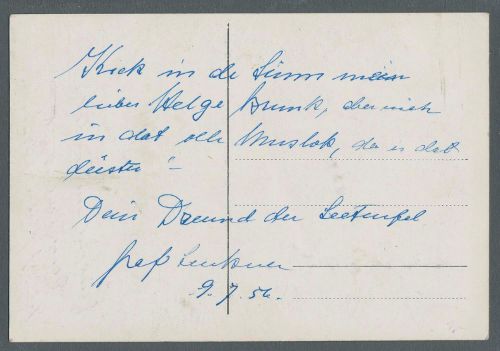 Kiek in de Sünn mein
lieber Helge Brunk, aber nich
in dat olle Muslok, da is dat
düster" -
Dein Freund der Seeteufel
Graf Luckner
9. 7. 56.